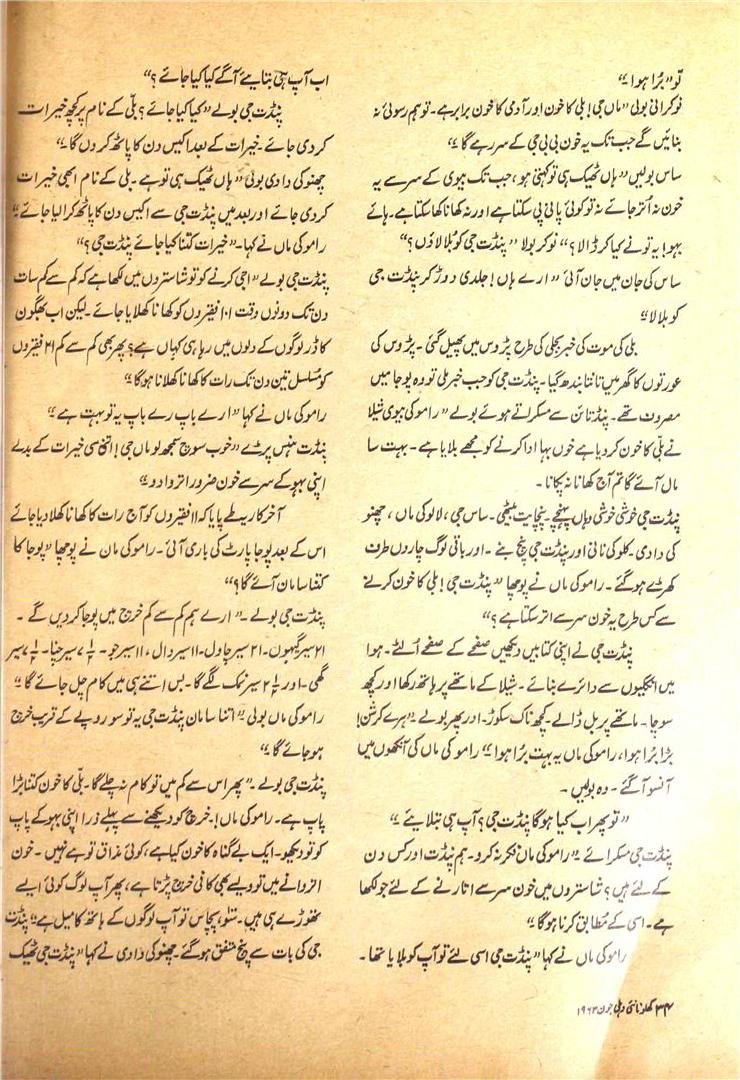 تو "بُرا ہوا ۔"
نوکرانی بولی "ماں جی! بلی کا خون اور آدمی کا خون برابر ہے۔ تو ہم رسوئی نہ
بنائیں گے جب تک یہ خون بی بی جی کے سر رہے گا ۔"
ساس بولیں "ہاں ٹھیک ہی تو کہتی ہو، جب تک بیوی کے سر سے یہ
خون نہ اُتر جائے نہ تو کوئی پانی پی سکتا ہے اور نہ کھانا کھا سکتا ہے۔ ہائے
بہو! یہ تو نے کیا کر ڈالا ؟" نوکر بولا "پنڈت جی کو بُلا لاؤں ؟"
ساس کی جان میں جان آئی "ارے ہاں! جلدی دوڑ کر پنڈت جی
کو بلا لا"
بلی کی موت کی خبر بجلی کی طرح پڑوس میں پھیل گئی ۔ پڑوس کی
عورتوں کا گھر میں تانتا بندھ گیا۔ پنڈت جی کو جب خبر ملی تو وہ پوجا میں
مصروف تھے۔ پنڈتائن سے مسکراتے ہوئے بولے "رامو کی بیوی شیلا
نے بلّی کا خون کر دیا ہے خوں بہا ادا کرنے کو مجھے بلایا ہے ۔ بہت سا
مال آئے گا تم آج کھانا نہ پکانا ۔
پنڈت جی خوشی خوشی وہاں پہنچے ۔ پنچایت بیٹھی۔ ساس جی، لالو کی ماں، چھنو
کی دادی ۔ کلو کی نانی اور پنڈت جی پنچ بنے ۔ اور باقی لوگ چاروں طرف
کھڑے ہو گئے ۔ رامو کی ماں نے پوچھا "پنڈت جی! بلی کا خون کرنے
سے کس طرح یہ خون سر سے اتر سکتا ہے ؟"
پنڈت جی نے اپنی کتابیں دیکھیں صفحے کے صفحے اُلٹے ۔ ہوا
میں انگلیوں سے دائرے بنائے ۔ شیلا کے ماتھے پر ہاتھ رکھا اور کچھ
سوچا ۔ ماتھے پر بل ڈالے۔ کچھ ناک سکوڑ ۔ اور پھر بولے "ہرے کرشن!
بڑا بُرا ہوا، رامو کی ماں یہ بہت بُرا ہوا" رامو کی ماں کی آنکھوں میں
آنسو آ گئے ۔ وہ بولیں ۔
"تو پھر اب کیا ہو گا پنڈت جی؟ آپ ہی بتلائیے ۔"
پنڈت جی مسکرائے "رامو کی ماں فکر نہ کرو ۔ ہم پنڈت اور کس دن
کے لئے ہیں؟ شاستروں میں خون سر سے اتارنے کے لئے جو لکھا
ہے۔ اسی کے مُطابق کرنا ہو گا ۔"
رامو کی ماں نے کہا "پنڈت جی اسی لئے تو آپ کو بلایا تھا ۔
اب آپ ہی بتائیے آگے کیا کیا جائے ؟"
پنڈت جی بولے "کیا کیا جائے؟ بلّی کے نام پر کچھ خیرات
کر دی جائے ۔ خیرات کے بعد اکیس دن کا پاٹھ کر دوں گا ۔"
چھنو کی دادی بولی "ہاں ٹھیک ہی تو ہے ۔ بلی کے نام ابھی خیرات
کر دی جائے اور بعد میں پنڈت جی سے اکیس دن کا پاٹھ کرا لیا جائے ۔"
رامو کی ماں نے کہا ۔ "خیرات کتنا کیا جائے پنڈت جی ؟"
پنڈت جی بولے "اجی کرنے کو تو شاستروں میں لکھا ہے کہ کم سے کم سات
دن تک دونوں وقت ۱۰۱ فقیروں کو کھانا کھلایا جائے ۔ لیکن اب بھگوان
کا ڈر لوگوں کے دلوں میں رہا ہی کہاں ہے؟ پھر بھی کم سے کم ۲۱ فقیروں
کو مُسلسل تین دن تک رات کا کھانا کھلانا ہو گا ۔"
رامو کی ماں نے کہا "ارے باپ رے باپ یہ تو بہت ہے ۔"
پنڈت ہنس پڑے "خوب سوچ سمجھ لو ماں جی! اتنی سی خیرات کے بدلے
اپنی بہو کے سر سے خون ضرور اتروا دو ۔"
آخر کار طے پایا کہ ۱۱ فقیروں کو آج رات کا کھانا کھلا دیا جائے
اس کے بعد پوجا پارٹ کی باری آئی ۔ رامو کی ماں نے پوچھا "پوجا کا
کتنا سامان آئے گا ؟"
پنڈت جی بولے ۔ "ارے ہم کم سے کم خرچ میں پوجا کر دیں گے ۔
۲۱ سیر گیہوں ۔ ۲۱ سیر چاول ۔ ۱۱ سیر دال، ۱۱ سیر جو ۔ ۷½ سیر چنا ۔ ۷½ سیر
گھی ۔ اور ۲½ سیر نمک لگے گا ۔ بس اتنے ہی میں کام چل جائے گا ۔"
رامو کی ماں بولی "اتنا سامان پنڈت جی یہ تو سو روپے کے قریب خرچ
ہو جائے گا ۔"
پنڈت جی بولے ۔ "پھر اس سے کم میں تو کام نہ چلے گا ۔ بلّی کا خون کتنا بڑا
پاپ ہے ۔ رامو کی ماں!۔ خرچ کو دیکھنے سے پہلے ذرا اپنی بہو کے پاپ
کو تو دیکھو ۔ ایک بے گناہ کا خون کیا ہے، کوئی مذاق تو ہے نہیں ۔ خون
اتروانے میں تو ویسے بھی کافی خرچ پڑتا ہے، پھر آپ لوگ کوئی ایسے
تھوڑے ہی ہیں ۔ سَو، پچاس تو آپ لوگوں کے ہاتھ کا میل ہے" پنڈت
جی کی بات سے پنچ متفق ہو گئے۔ چھنو کی دادی نے کہا "پنڈت جی ٹھیک
۳۴ کھلونا نئی دہلی جون ۱۹۶۳